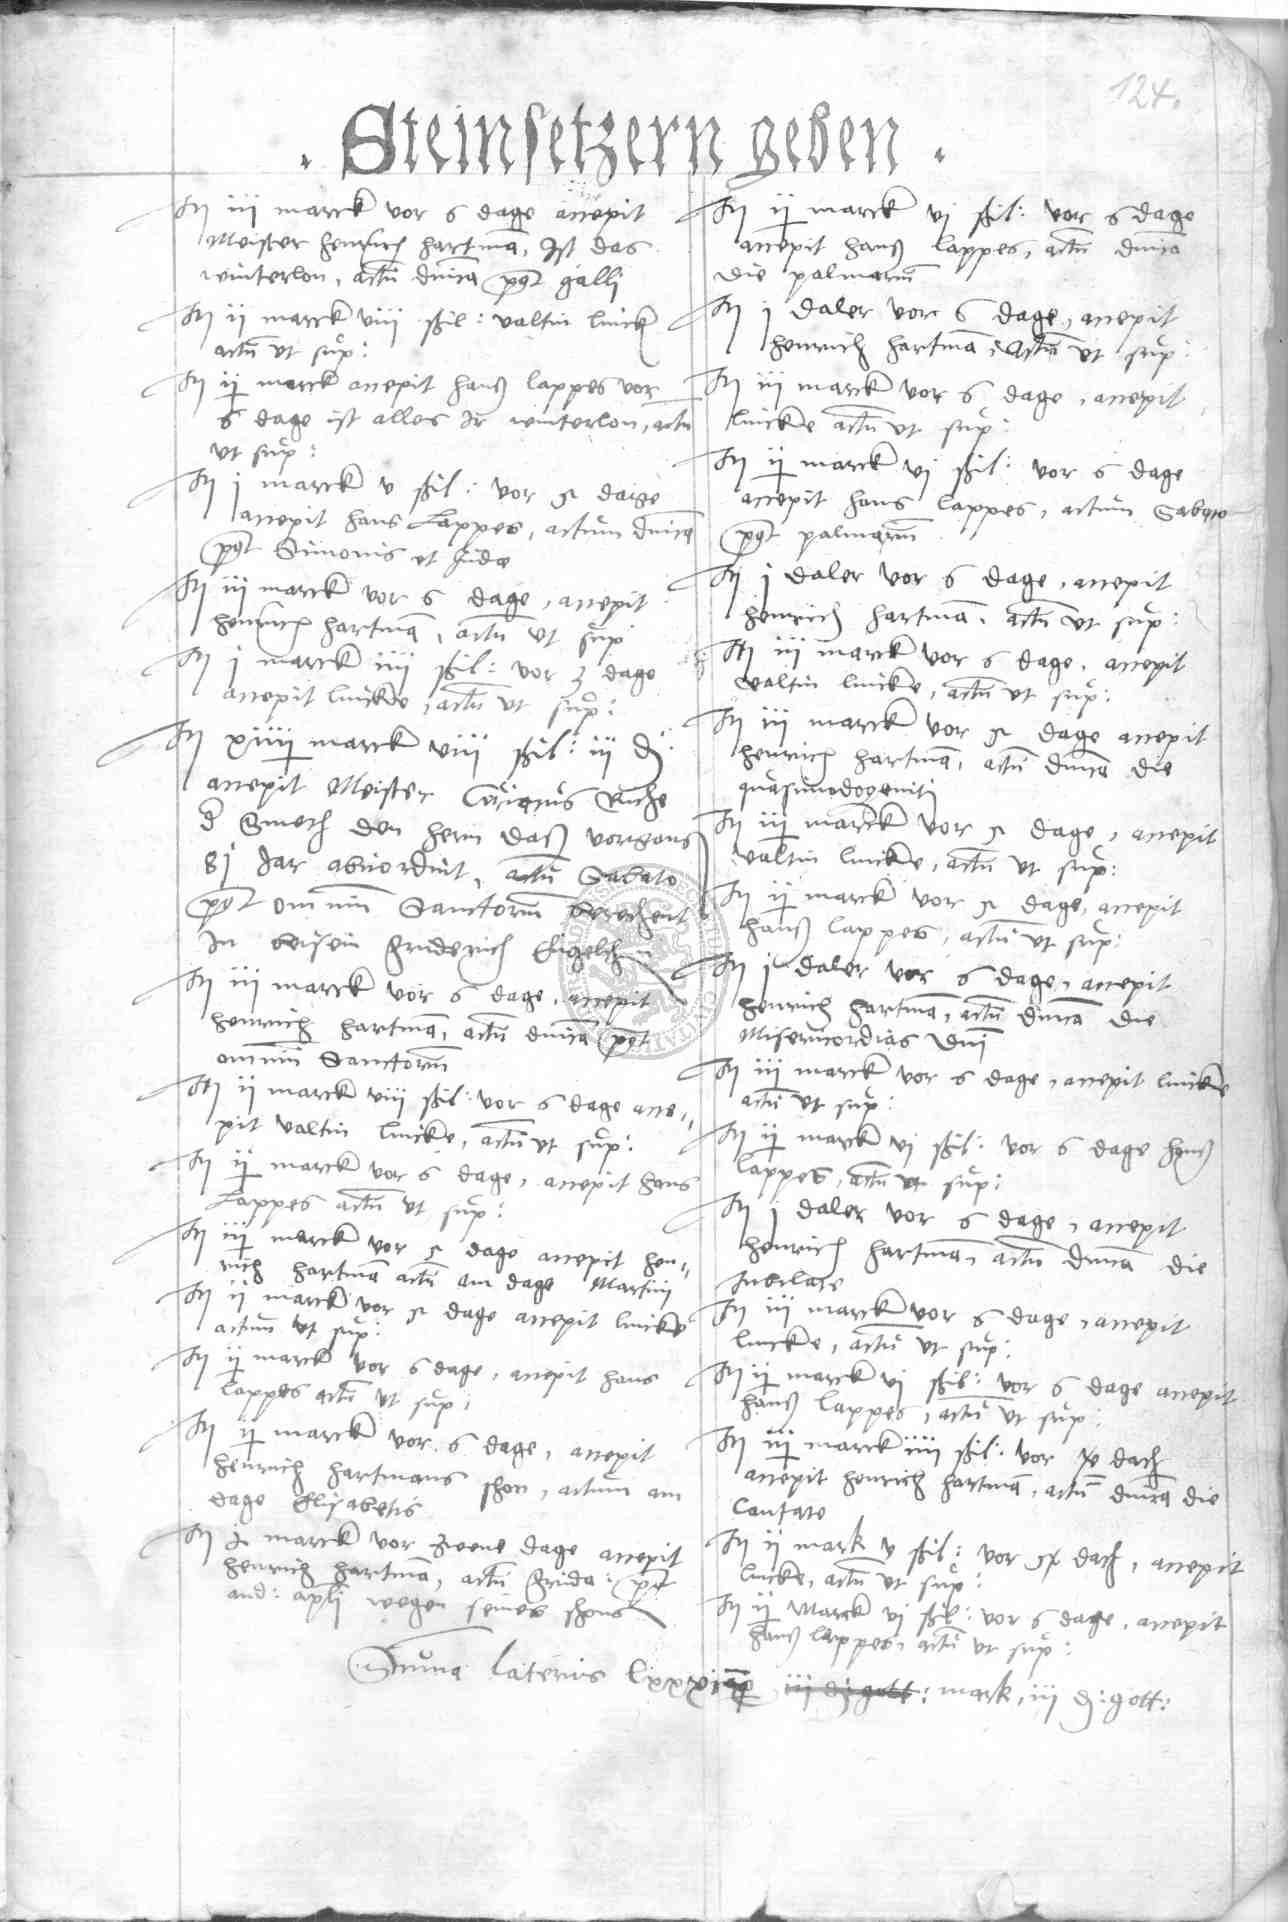 124.
Steinsetzern geben
It iii marck vor 6 dage accepit
Meister Henrich hartmã, Ist das
winterlon, actũ dnica post galli
It ii marck viii ßil: valtin lincke
actũ ut sup:
It ij marck accepit hanß lappes vor
6 dage ist alles Ir winterlon, actũ
ut sup:
It j marck v ßil: vor dage
accepit hans Lappes, actum dnica
post Simonis et Jude
It iii marck vor 6 dage, accepit
henrich hartmã, actũ ut sup
It j marck iiii ßil: vor 3 dage
accepit lincke, actũ ut sup:
It marck viii ßil: iii d
accepit Meister
Smeth den hern daß
81 Jar, actũ Sabato
post omnium Sanctorum berechent
In beisein friderich Engelh
It iii marck vor 6 dage, accepit
henrich hartmã, actũ dnica post
omnium Sanctorum
It ii marck viii ßil: vor 6 dage acce
pit valtin lincke, actũ ut sup:
It ij marck vor 6 dage, accepit hans
Lappes actũ ut sup:
It marck vor 5 dage accepit hen
rich hartmã actũ am dage Martini
It ii marck vor 5 dage accepit lincke
actum ut sup:
It ij marck vor 6 dage, accepit hans
lappes actũ ut sup:
It ij marck vor 6 dage, accepit
henrich hartmans shon, actum am
dage Elisabetis
It j marck vor zwene dage accepit
henrich hartmã, actũ frida: post
and: apli wegen seines shons
It ij marck vj ßil: vor 6 dage
accepit hanß lappes, actũ dnica
die palmarum
It j daler vor 6 dage, accepit
henrich hartmã, Actũ ut sup:
It iii marck vor 6 dage, accepit
lincke actũ ut sup:
It ij marck vj ßil: vor 6 dage
accepit hans lappes, actum Sabato
post palmarum
It j daler vor 6 dage, accepit
henrich hartmã, actũ ut sup:
It iii marck vor 6 dage, accepit
valtin lincke, actũ ut sup:
It iii marck vor 5 dage accepit
henrich hartmã, actũ dnica die
quasimodogeniti
It marck vor 5 dage, accepit
valtin lincke, actũ ut sup:
It ij marck vor 5 dage, accepit
hanß lappes, actũ ut sup:
It j daler vor 6 dage, accepit
henrich hartmã, actũ dnica die
Misericordias Dni
It iii marck vor 6 dage, accepit lincke
actũ ut sup:
It ij marck vj ßil: vor 6 dage hanß
lappes, actũ ut sup:
It j daler vor 6 dage, accepit
henrich hartmã, actũ dnica die
Jubilate
It iii marck vor 6 dage, accepit
lincke, actũ ut sup:
It ij marck vj ßil: vor 6 dage accepit
hanß lappes, actũ ut sup:
It marck iiii ßil: vor dach
accepit henrich hartmã, actũ dnica die
Cantate
It ii mark v ßil: vor dach, accepit
lincke, actũ ut sup:
It ij Marck vj ßil: vor 6 dage, accepit
hanß lappes, actũ ut sup:
Suma lateris mark, iii d: gott: